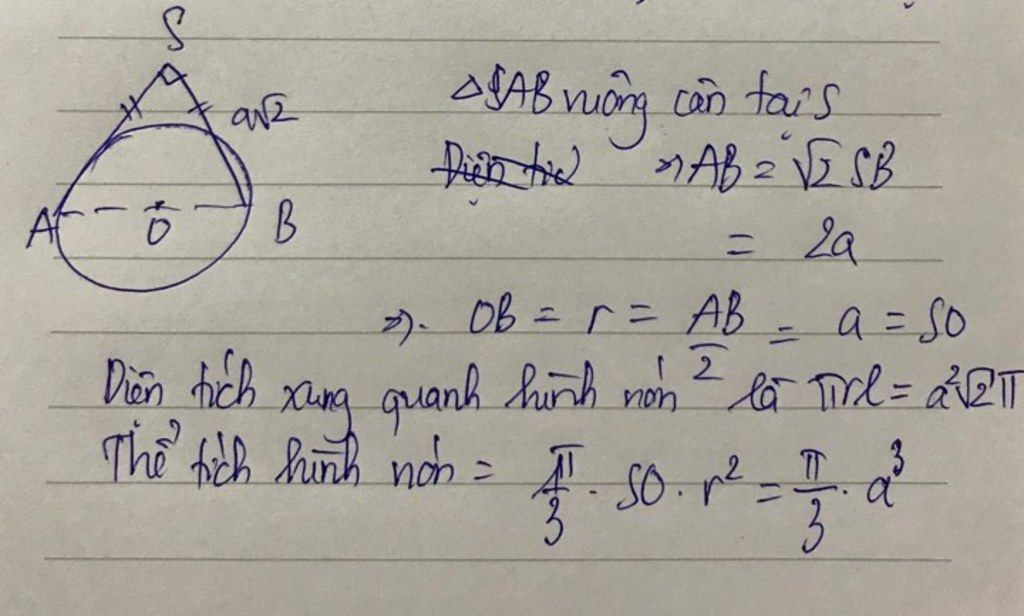 S
a√2
A
O
B
△SAB vuông cân tại S
Diện tíc
⇒ AB = √2 SB
= 2a
⇒. OB = r = AB/2 = a = SO
Diện tích xung quanh hình nón là πrl = a²√2π
Thể tích hình nón = π/3 . SO . r² = π/3 . a³